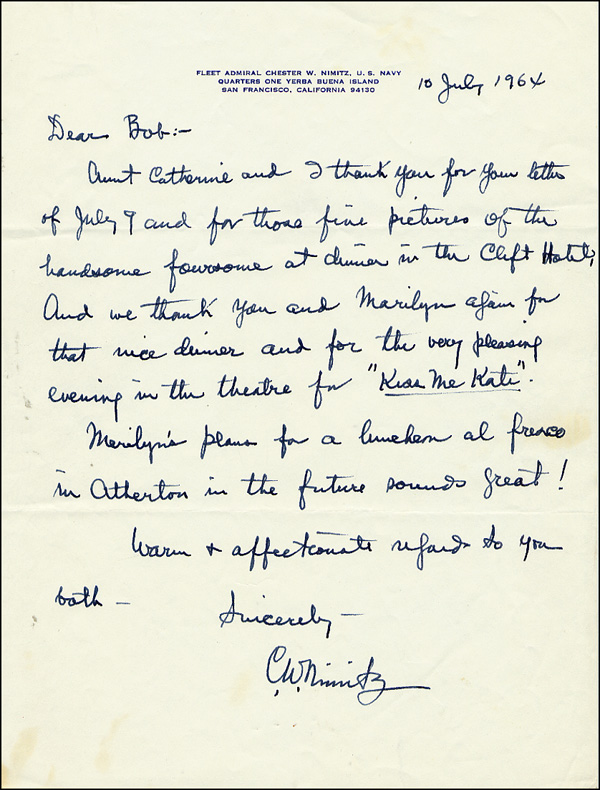 FLEET ADMIRAL CHESTER W. NIMITZ, U. S. NAVY
QUARTERS ONE YERBA BUENA ISLAND
SAN FRANCISCO, CALIFORNIA 94130
10 July 1964
Dear Bob:-
Aunt Catherine and I thank you for your letter
of July 9 and for those fine pictures of the
handsome foursome at dinner in the Clift Hotel,
And we thank you and Marilyn again for
that nice dinner and for the very pleasing
evening in the theatre for "Kiss Me Kate".
Marilyn's plans for a luncheon al fresco
in Atherton in the future sounds great!
Warm & affectionate regards to you
both -
Sincerely -
C.W. Nimitz